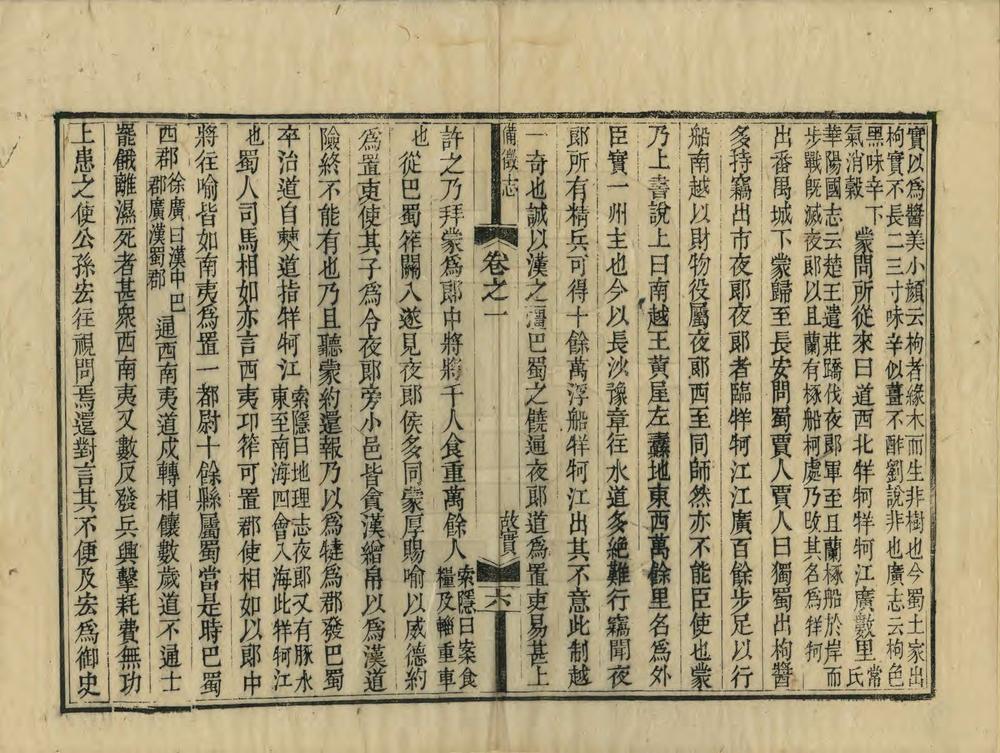 實以爲醬美小顔云枸者緣木而生非樹也今蜀土家出
枸實不長二三寸味辛似薑不酢劉說非也廣志云枸色
黑味辛下
氣消穀
蒙問所從來曰道西北牂牁牂牁江廣數里
常
氏
華陽國志云楚王遣莊蹻伐夜郞軍至且蘭椓船於岸而
步戰旣滅夜郞以且蘭有椓船柯處乃改其名爲牂牁
出番禺城下蒙歸至長安問蜀賈人賈人曰獨蜀出枸醬
多持竊出市夜郞夜郞者臨牂牁江江廣百餘步足以行
船南越以財物役屬夜郞西至同師然亦不能臣使也蒙
乃上書說上曰南越王黃屋左纛地東西萬餘里名爲外
臣實一州主也今以長沙豫章往水道多絶難行竊聞夜
郞所有精兵可得十餘萬浮船牂牁江出其不意此制越
一奇也誠以漢之彊巴蜀之饒通夜郞道爲置吏易甚上
備徵志
卷之一
故實
六
許之乃拜蒙爲郞中將將千人食重萬餘人
索隱曰案食
糧及輜重車
也
從巴蜀筰關入遂見夜郞侯多同蒙厚賜喻以威德約
爲置吏使其子爲令夜郞旁小邑皆貪漢繒帛以爲漢道
險終不能有也乃且聽蒙約還報乃以爲犍爲郡發巴蜀
卒治道自僰道指牂牁江
索隱曰地理志夜郞又有豚水
東至南海四會入海此牂牁江
也
蜀人司馬相如亦言西夷邛筰可置郡使相如以郞中
將往喻皆如南夷爲置一都尉十餘縣屬蜀當是時巴蜀
西郡
徐廣曰漢中巴
郡廣漢蜀郡
通西南夷道戍轉相饟數歲道不通士
罷餓離濕死者甚衆西南夷又數反發兵興擊耗費無功
上患之使公孫宏往視問焉還對言其不便及宏爲御史